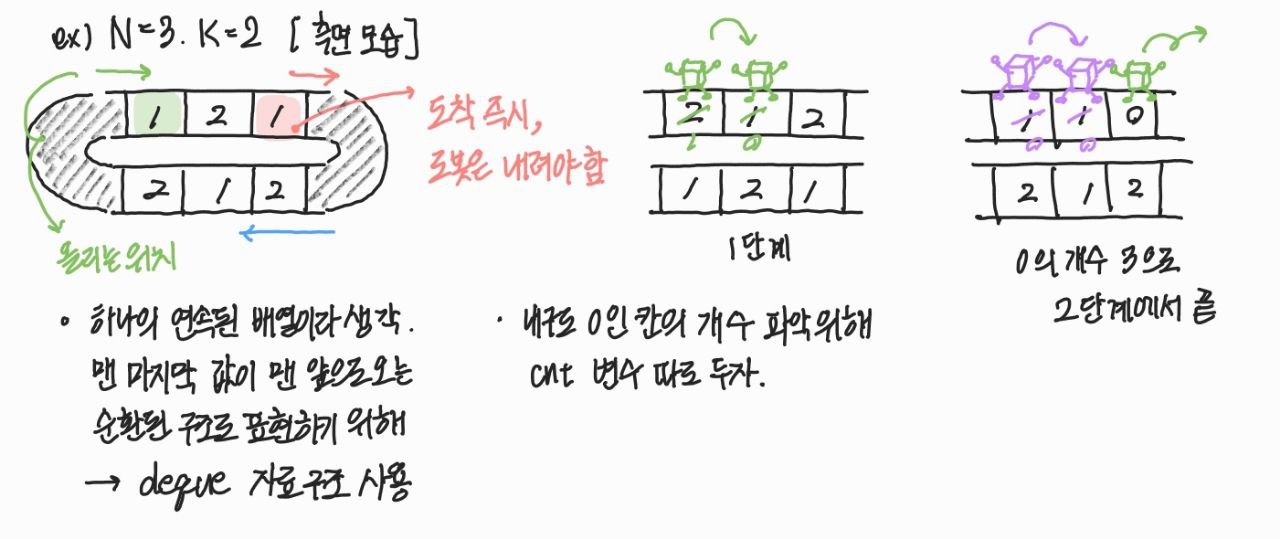 ex) N=3. K=2 [측면 모습]
1 2 1
2 1 2
도착 즉시,
로봇은 내려야 함
올리는 위치
2 1 2
1 0
1 2 1
1단계
1 1 0
0 0
2 1 2
0의 개수 3으로
2단계에서 끝
• 하나의 연속된 배열이라 생각.
맨 마지막 값이 맨 앞으로 오는
순환된 구조로 표현하기 위해
→ deque 자료구조 사용
• 내구도 0인 칸의 개수 파악 위해
cnt 변수 따로 두자.